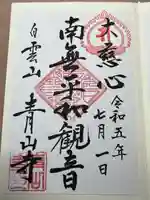 令和五年
七月一日
南無平和観音
白雲山
青山寺